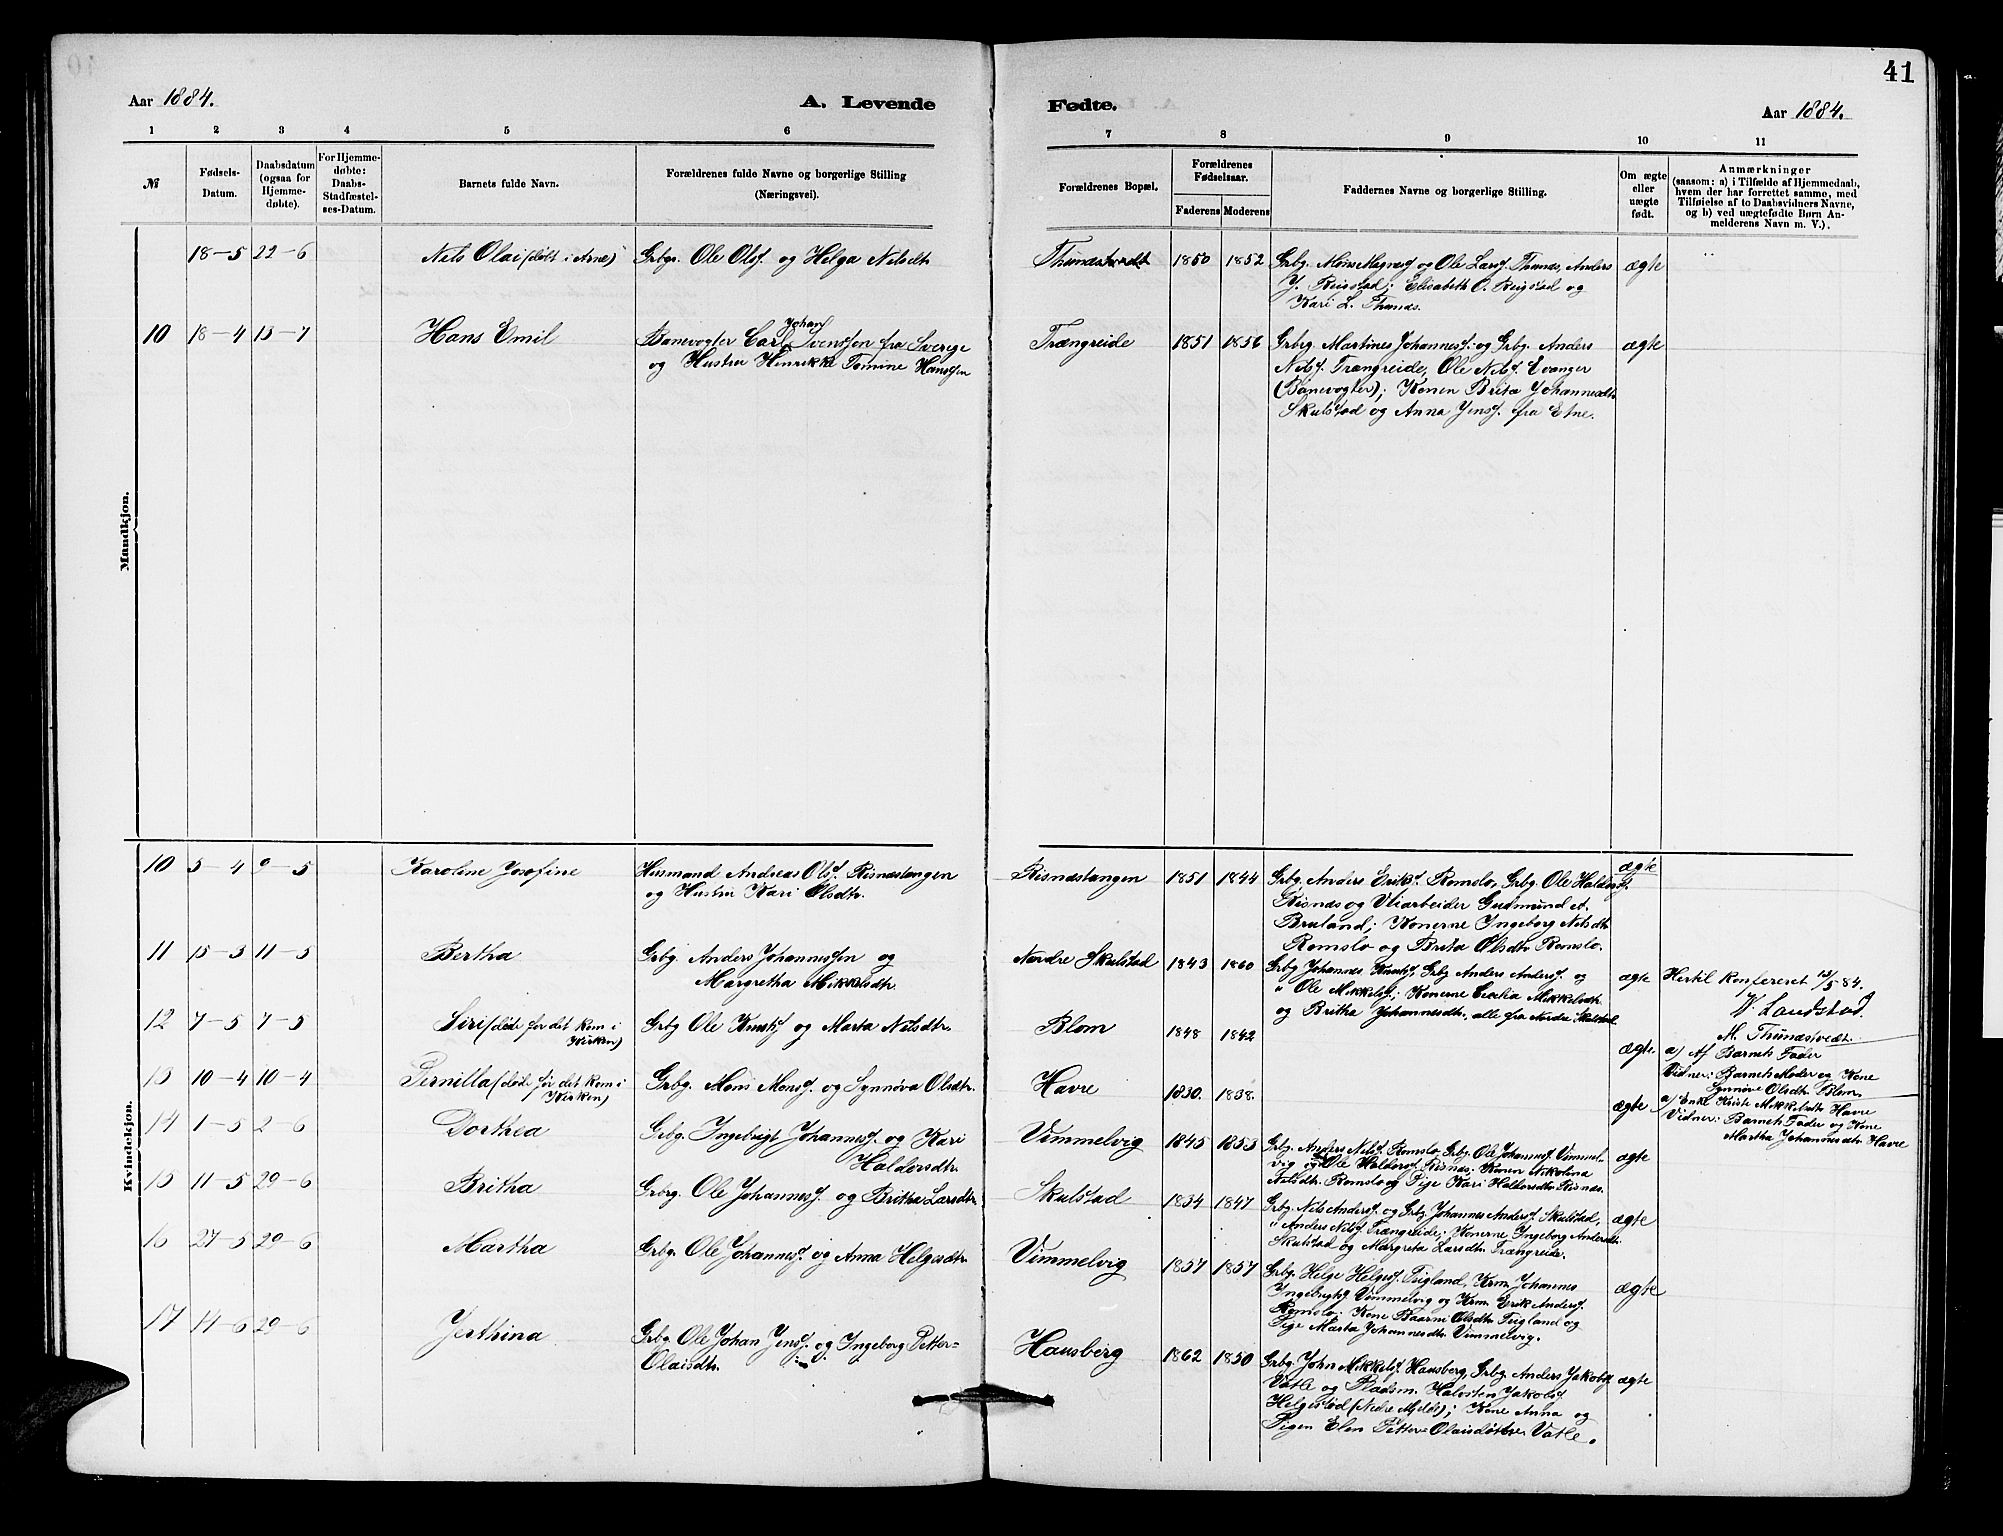 41
Aar 1884.
A. Levende
Fødte.
Aar 1884.
1 2 3 4 5 6 7 8 9 10 11
№
Fødsels-
Datum.
Daabsdatum
(ogsaa for
Hjemme-
døbte).
For Hjemme-
døbte:
Daabs-
Stadfæstel-
ses-Datum.
Barnets fulde Navn.
Forældrenes fulde Navne og borgerlige Stilling
(Næringsvei).
Forældrenes Bopæl.
Forældrenes
Fødselsaar.
Faderens
Moderens
Faddernes Navne og borgerlige Stilling.
Om ægte
eller
uægte
født.
Anmærkninger
(saasom: a) i Tilfælde af Hjemmedaab,
hvem der har forrettet samme, med
Tilføielse af to Daabsvidners Navne,
og b) ved uægtefødte Børn An-
melderens Navn m. V.).
Mandkjøn.
18-5 22-6 Nels Olai (døbt i Arne) Grbgr. Ole Ols. og Helga Nelsdtr 1850 1852 ægte
Grbg. Mons Magnes. og Ole Lars. Thunes, Anders
J. Reigstad; Elisabeth O. Reigstad og
Kari L. Thunes.
10 18-4 13-7 Hans Emil
Johan
Banevogter Carl Svenssen fra Sverige
og Hustru Henrikke Tomine Hanssen
Trængreide 1851 1856 ægte
Grbg. Martines Johannes. og Grbg. Anders
Nels. Trængreide, Ole Nels. Evanger
(Banevogter); Konen Brita Johannesdtr
Skulstad og Anna Jens. fra Etne.
Kvindekjøn.
10 5-4 9-5 Karoline Josefine
Husmand Andreas Ols. Risnæstangen
og Hustru Kari Olsdtr.
Risnæstangen 1851 1844 ægte
Grbg. Anders Eriks. Romslo, Grbg. Ole Halders.
Risnæs og Veiarbeider Gudmund A.
Bruland; Konerne Ingeborg Nelsdtr
Romslo og Brita Olsdtr Romslo.
11 15-3 11-5 Bertha
Grbg. Anders Johannessen og
Margretha Mikkelsdtr.
Nordre Skulstad 1843 1860 ægte
Grbg Johannes Knuts. Grbg Anders Anders. og
" Ole Mikkels.; Konerne Cecilia Mikkelsdtr
og Britha Johannesdtr. alle fra Nordre Skulstad
Hertil konfereret 13/5 84.
V. Landstad
M. Thunestvedt.
12 7-5 7-5 Siri (døde før det kom i
Kirken)
Grbg Ole Knuts. og Marta Nelsdtr.
Blom 1848 1842 ægte
a) Af Barnets Fader
Vidner: Barnets Moder og Kone
Synnøve Olsdtr Blom
13 10-4 10-4 Pernilla (døde før det kom i
Kirken)
Grbg. Mons Mons. og Synnøva Olsdtr.
Havre 1830. 1838. ægte
a) Enke Kriste Mikkelsdtr Havre
Vidner: Barnets Fader og Kone
Martha Johannesdtr Havre
14 1-5 2-6 Dorthea
Grbg. Ingebrigt Johannes. og Kari
Haldorsdtr.
Vimmelvig 1845 1853 ægte
Grbg. Anders Nels. Romslo, Grbg. Ole Johannes. Vimmel-
vig og Ole Haldors. Risnæs; Konen Nikolina
Nelsdtr. Romslo og Pige Kari Haldorsdtr Risnæs.
15 11-5 29-6 Britha
Grbrg. Ole Johannes. og Britha Larsdtr.
Skulstad 1834 1847 ægte
Grbg. Nels Anders. og Grbg. Johannes Anders. Skulstad,
" Anders Nels. Trængreide; Konerne Ingeborg Andersdtr.
Skulstad og Margreta Larsdtr. Trængreide.
16 27-5 29-6 Martha
Grbgr. Ole Johannes. og Anna Helgesdtr.
Vimmelvig 1857 1857 ægte
Grbg. Helge Helges. Tigland, Krm. Johannes
Ingebrigts. Vimmelvig og Krm. Erik Anders.
Romslo; Kone Baarni Olsdtr Tigland og
Pige Marta Johannesdtr Vimmelvig.
17 14-6 29-6 Jertrina
Grbg. Ole Johan Jens. og Ingeborg Petter-
Olaisdtr.
Hausberg 1862 1850 ægte
Grbg. John Mikkels. Hausberg, Grbg. Anders Jakobs.
Vatle og Pladsm. Halsten Jakobs.
Helgestød (Nedre Mjelde); Kone Anna og
Pigen Elen Petter Olaisdøttre Vatle.